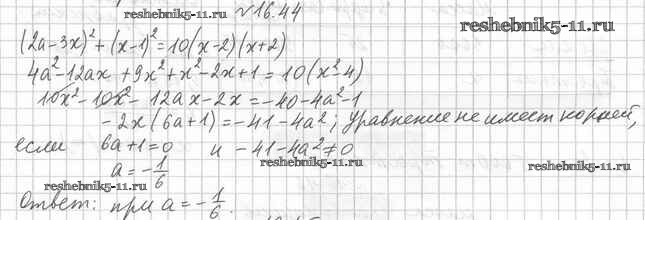 reshebnik5-11.ru №16.44 reshebnik5-11.ru
(2a-3x)²+(x-1)²=10(x-2)(x+2)
4a²-12ax+9x²+x²-2x+1=10(x²-4)
10x²-10x²-12ax-2x=-40-4a²-1
-2x(6a+1)=-41-4a²; уравнение не имеет корней,
если 6a+1=0 и -41-4a²≠0
reshebnik5-11.ru reshebnik5-11.ru
a=-1/6
reshebnik5-11.ru
Ответ: при a=-1/6.